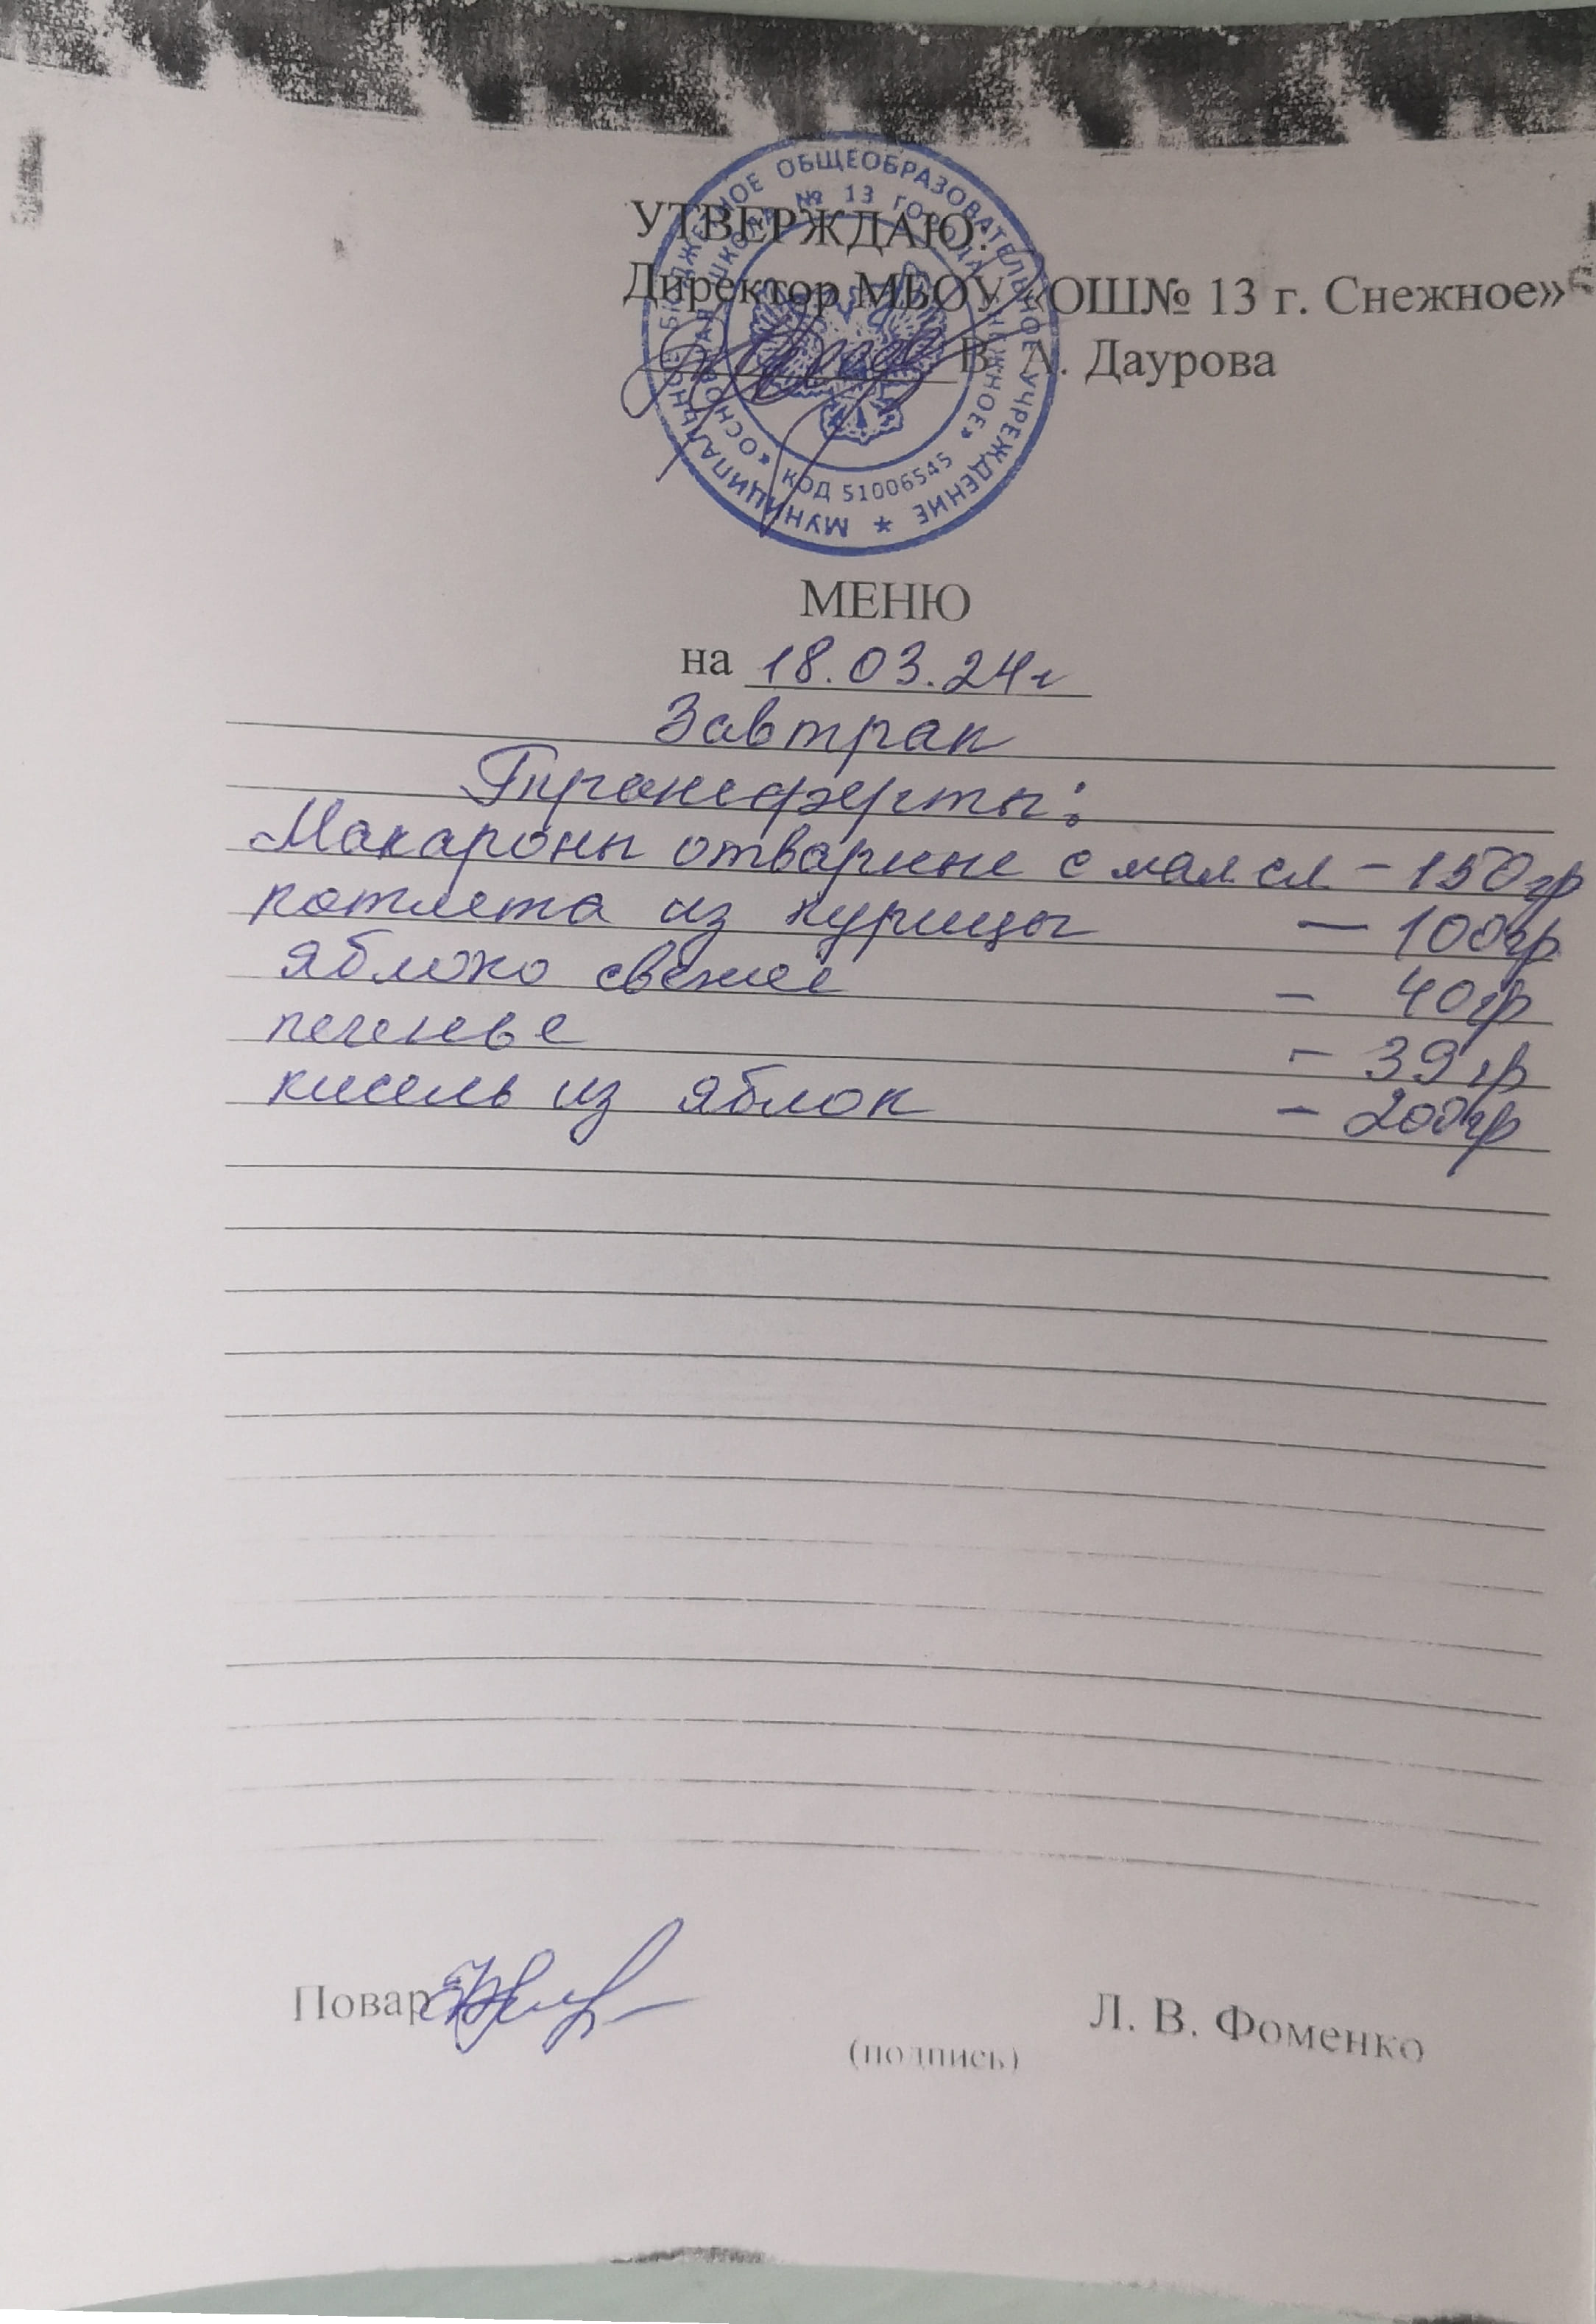 УТВЕРЖДАЮ:
Директор МБОУ «ОШ№ 13 г. Снежное»
В. А. Даурова
МУНИЦИПАЛЬНОЕ БЮДЖЕТНОЕ ОБЩЕОБРАЗОВАТЕЛЬНОЕ УЧРЕЖДЕНИЕ *
«ОСНОВНАЯ ШКОЛА № 13 ГОРОДА СНЕЖНОЕ»
КОД 51006545
МЕНЮ
на 18.03.24г
Завтрак
Трансферты:
Макароны отварные с масл – 150гр
котлета из курицы — 100гр
яблоко свежее – 40гр
печенье – 39гр
кисель из яблок – 200гр
Повар Л. В. Фоменко
(подпись)